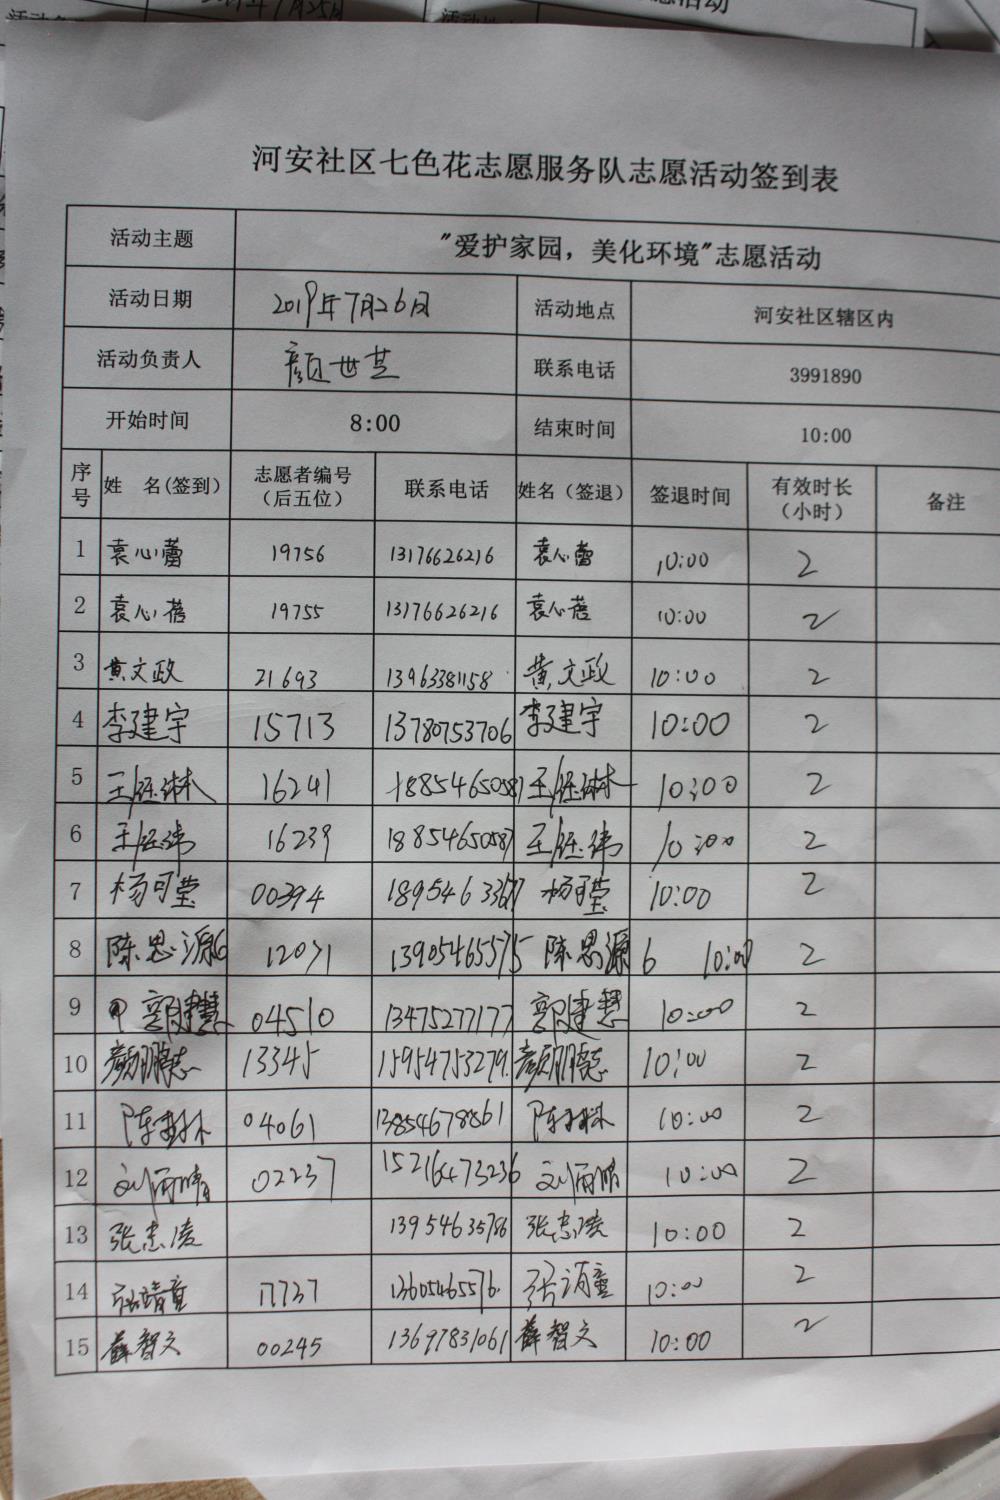 河安社区七色花志愿服务队志愿活动签到表
活动主题 "爱护家园，美化环境"志愿活动
活动日期 2019年7月26日 活动地点 河安社区辖区内
活动负责人 颜世芝 联系电话 3991890
开始时间 8:00 结束时间 10:00
序号 姓 名(签到) 志愿者编号（后五位） 联系电话 姓名（签退） 签退时间 有效时长（小时） 备注
1 袁心蕾 19756 13176626216 袁心蕾 10:00 2
2 袁心蓓 19755 13176626216 袁心蓓 10:00 2
3 黄文政 21693 13963381158 黄文政 10:00 2
4 李建宇 15713 13780753706 李建宇 10:00 2
5 王钰琳 16241 18854650587 王钰琳 10:00 2
6 王钰玮 16239 18854650587 王钰玮 10:00 2
7 杨可莹 00394 杨可莹 10:00 2
8 陈思源6 12071 13905465575 陈思源6 10:00 2
9 郭建慧 04510 13475277177 郭建慧 10:00 2
10 颜鹏志 13345 15954753279 颜鹏志 10:00 2
11 04061 13854678861 10:00 2
12 刘雨晴 02237 15216473236 刘雨晴 10:00 2
13 张志凌 13954635786 张志凌 10:00 2
14 17737 13605465576 10:00 2
15 薛智文 00245 13697831061 薛智文 10:00 2